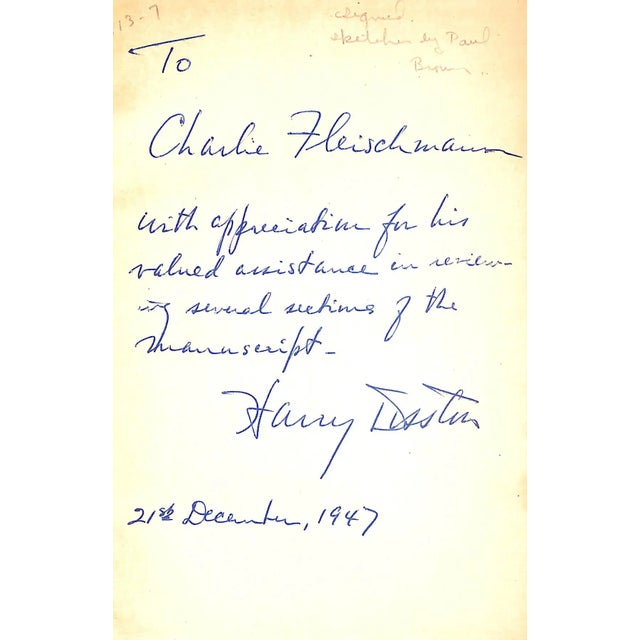 13-7
signed
sketches by Paul
Brown
To
Charlie Fleischmann
with appreciation for his
valued assistance in review-
ing several sections of the
manuscript-
Harry Disston
21st December, 1947